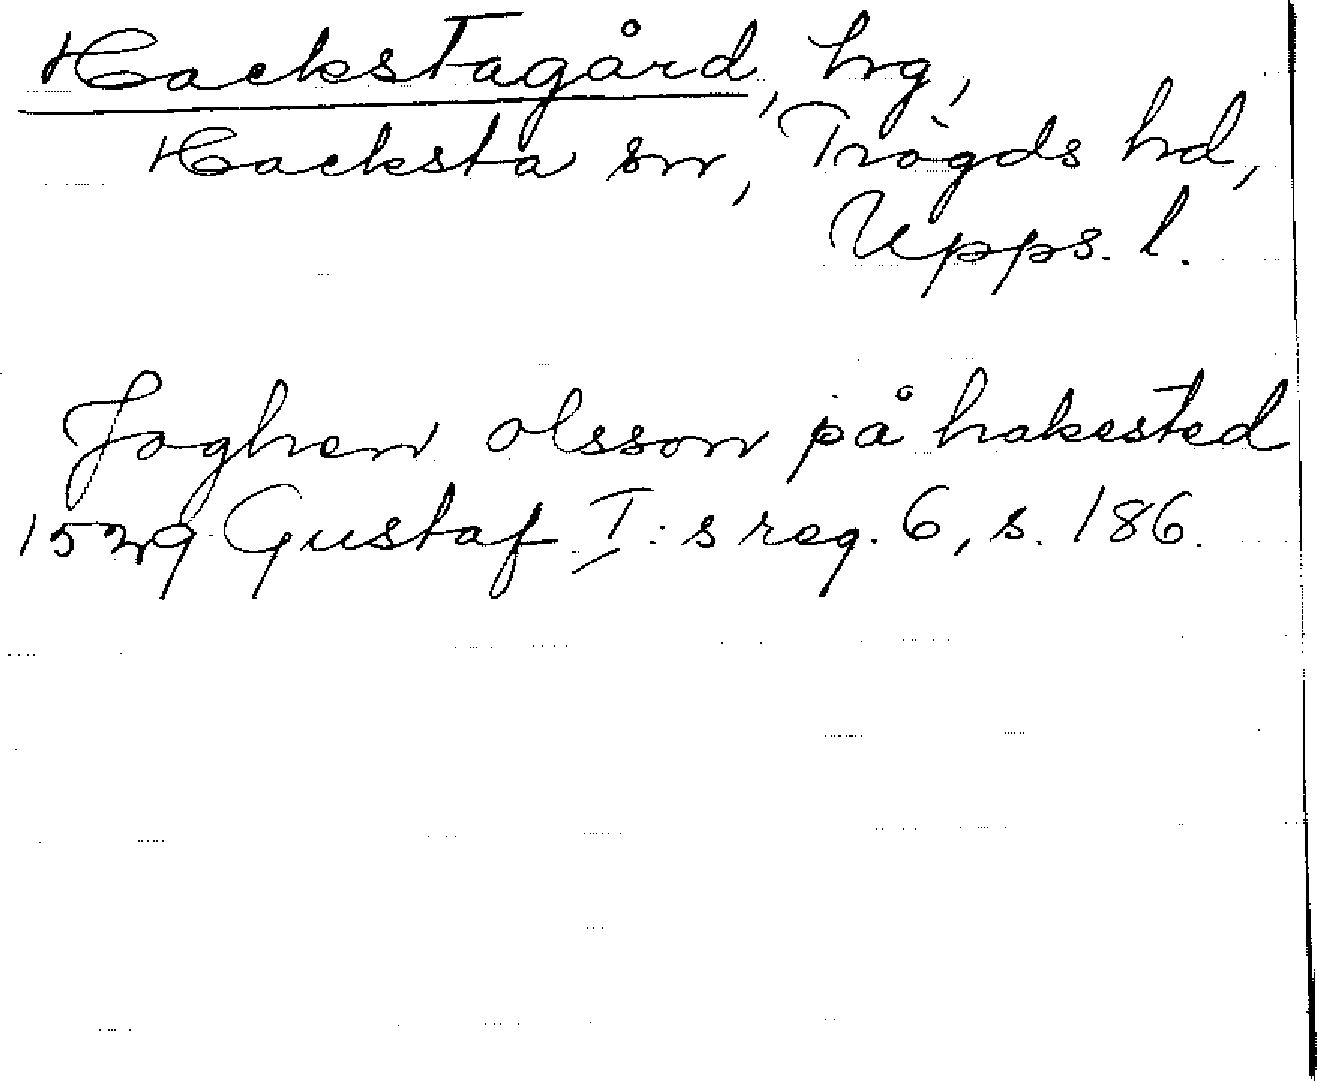 Hackstagård, hg,
Hacksta sn, Trögds hd,
Upps. l.
Joghen olsson på hakested
1529 Gustaf I:s reg. 6, s. 186.